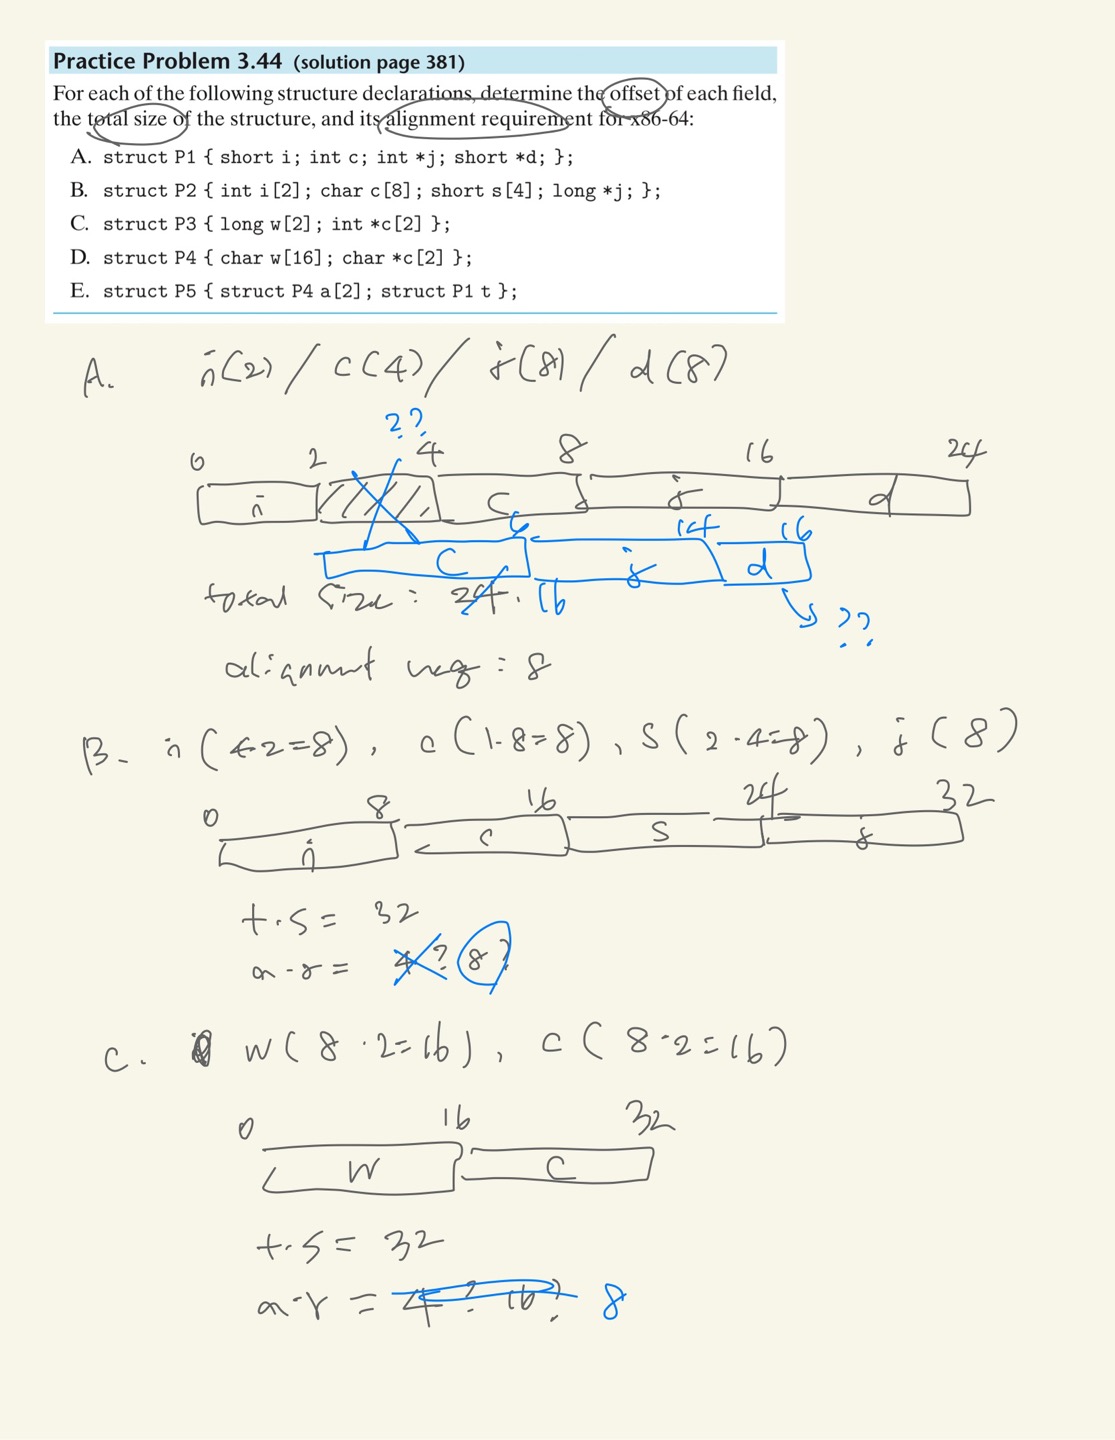 Practice Problem 3.44 (solution page 381)
For each of the following structure declarations, determine the offset of each field,
the total size of the structure, and its alignment requirement for x86-64:
A. struct P1 { short i; int c; int *j; short *d; };
B. struct P2 { int i[2]; char c[8]; short s[4]; long *j; };
C. struct P3 { long w[2]; int *c[2] };
D. struct P4 { char w[16]; char *c[2] };
E. struct P5 { struct P4 a[2]; struct P1 t };
A. i(2) / c(4) / j(8) / d(8)
??
0 2 4 8 16 24
i c j d
6 14 16
c j d
total size : 24. 16
??
alignment req : 8
B. i (4·2=8), c (1·8=8), s (2·4=8), j (8)
0 8 16 24 32
i c s j
t.s = 32
a-r = 4? 8?
C. w (8·2=16), c (8·2=16)
0 16 32
w c
t.s = 32
a-r = 4? 16? 8